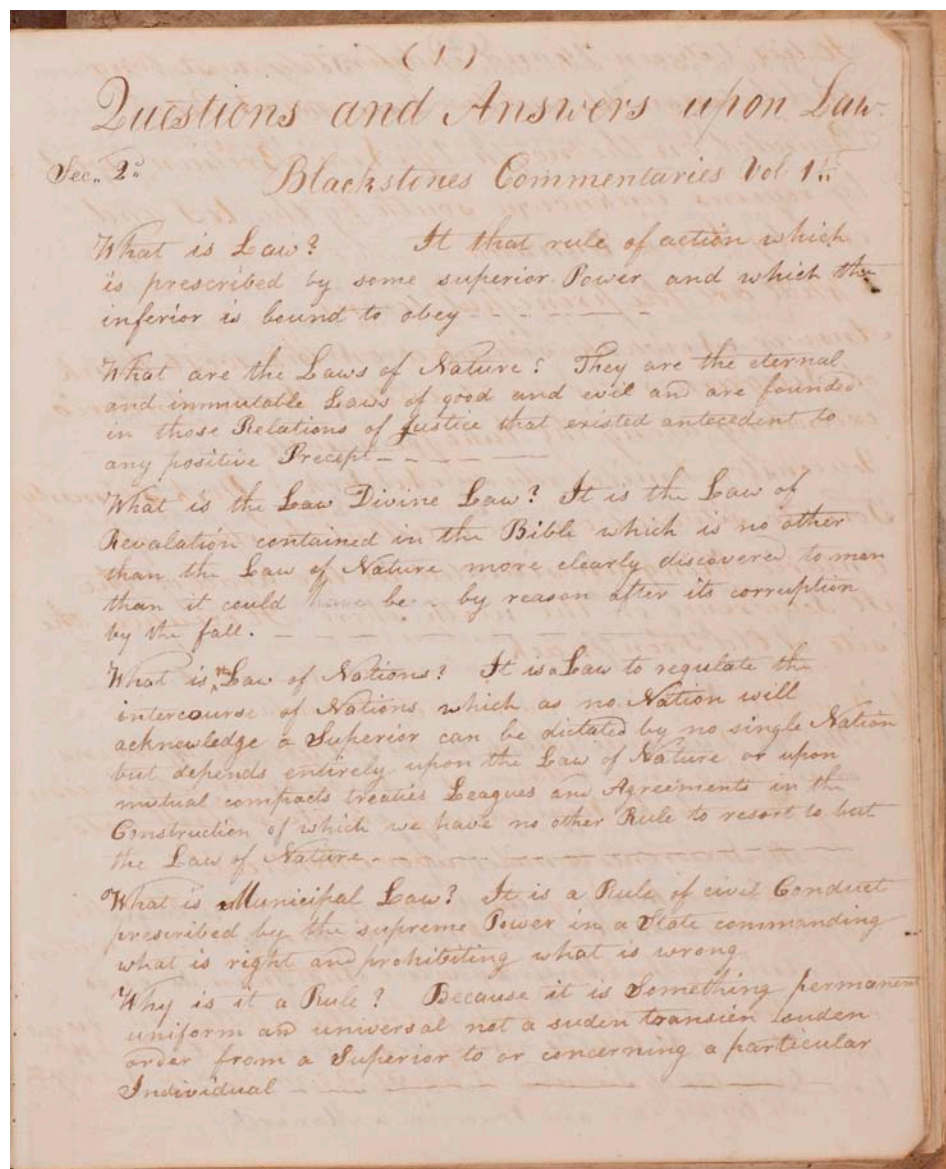 (1)
Questions and Answers upon Law
Sec. 2d
Blackstones Commentaries Vol 1st
What is Law? It that rule of action which
is prescribed by some superior Power and which the
inferior is bound to obey
What are the Laws of Nature? They are the eternal
and immutable Laws of good and evil and are founded
in those Relations of Justice that existed antecedent to
any positive Precept
What is the Law Divine Law? It is the Law of
Revalation contained in the Bible which is no other
than the Law of Nature more clearly discovered to man
than it could have be by reason after its corruption
by the fall.
What is the Law of Nations? It is a Law to regulate the
intercourse of Nations which as no Nation will
acknowledge a Superior can be dictated by no single Nation
but depends entirely upon the Law of Nature or upon
mutual compacts treaties Leagues and Agreements in the
Construction of which we have no other Rule to resort to but
the Law of Nature
What is Municipal Law? It is a Rule of civil Conduct
prescribed by the supreme Power in a State commanding
what is right and prohibiting what is wrong
Why is it a Rule? Because it is Something permanent
uniform and universal not a suden transien suden
order from a Superior to or concerning a particular
Individual